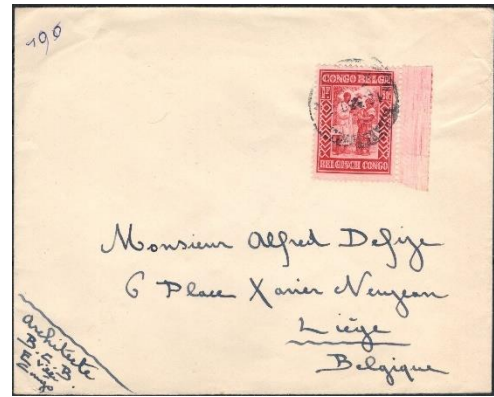 190
CONGO BELGE
BELGISCH CONGO
Monsieur Alfred Defize
6 Place Xavier Neujean
Liège
Belgique
architecte
B. C. B.